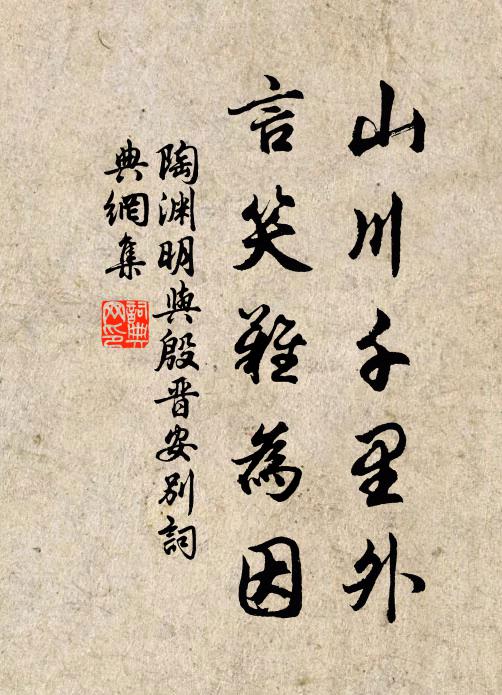 山川千里外
言笑難為因
陶渊明與殷晋安別詞
典網集
詞典
网印